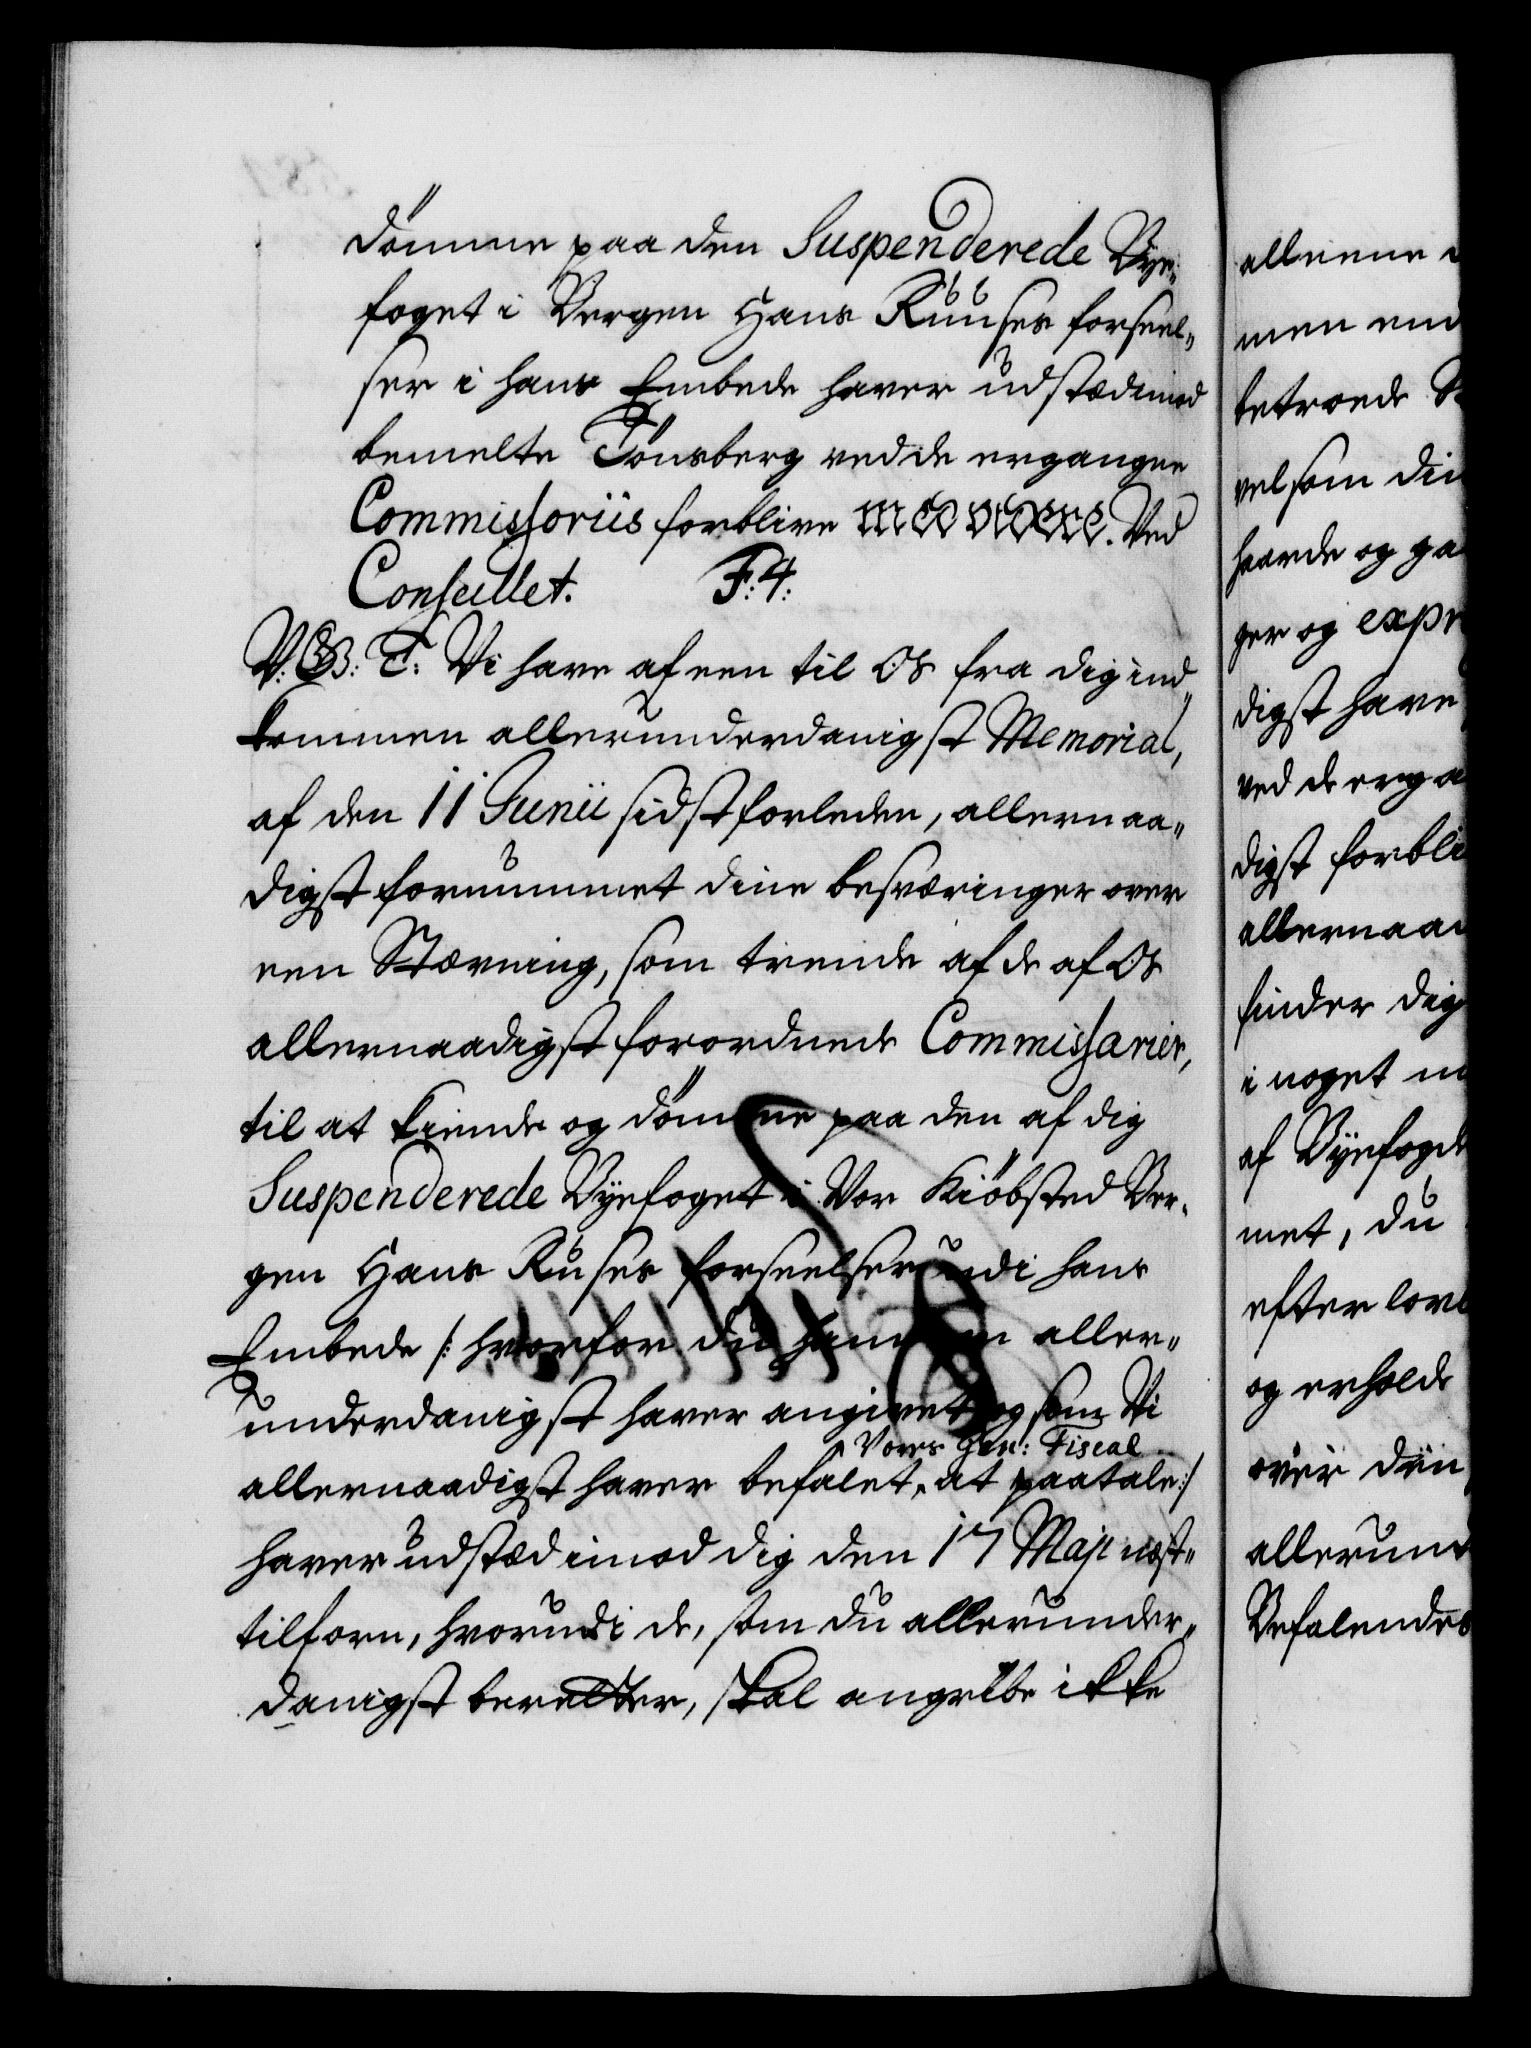 dömme paa den Suspenderede Bye-
foget i Bergen Hans Ruuses forseel-
ser i hans Embede haver udstæd imod
bemelte Tönsberg ved de ergangne
Commissoriis forblive Ved
Conseillet. F: 4:
V: G: T: Vi have af een til Os fra dig ind-
kommen allerunderdanigst Memorial,
af den 11 Junii sidstforleden, allernaa-
digst fornummet dine besværinger over
een Stævning, som trende af de af Os
allernaadigst forordnede Commissarier,
til at kiende og dömme paa den af dig
Suspenderede Byefoget i Vor Kiöbsted Ber-
gen Hans Ruses forseelser udi hans
Embede /: hvorfor du ham aller-
underdanigst haver angivet og som Vi
Vores Gen: Fiscal
allernaadigst haver befalet, at paatale :/
haver udstæd imod dig den 17 Maji næst-
tilforn, hvorudi de, som du allerunder-
danigst beretter, skal angribe ikke
alleene
men end
betroede
vel som din
haarde og
ger og expr
digst have
ved de erga
digst forbli
allernaa
finder dig
i noget
af Byefogd
met, du
efter lov
og erholde
over din
allerund
Befalendes